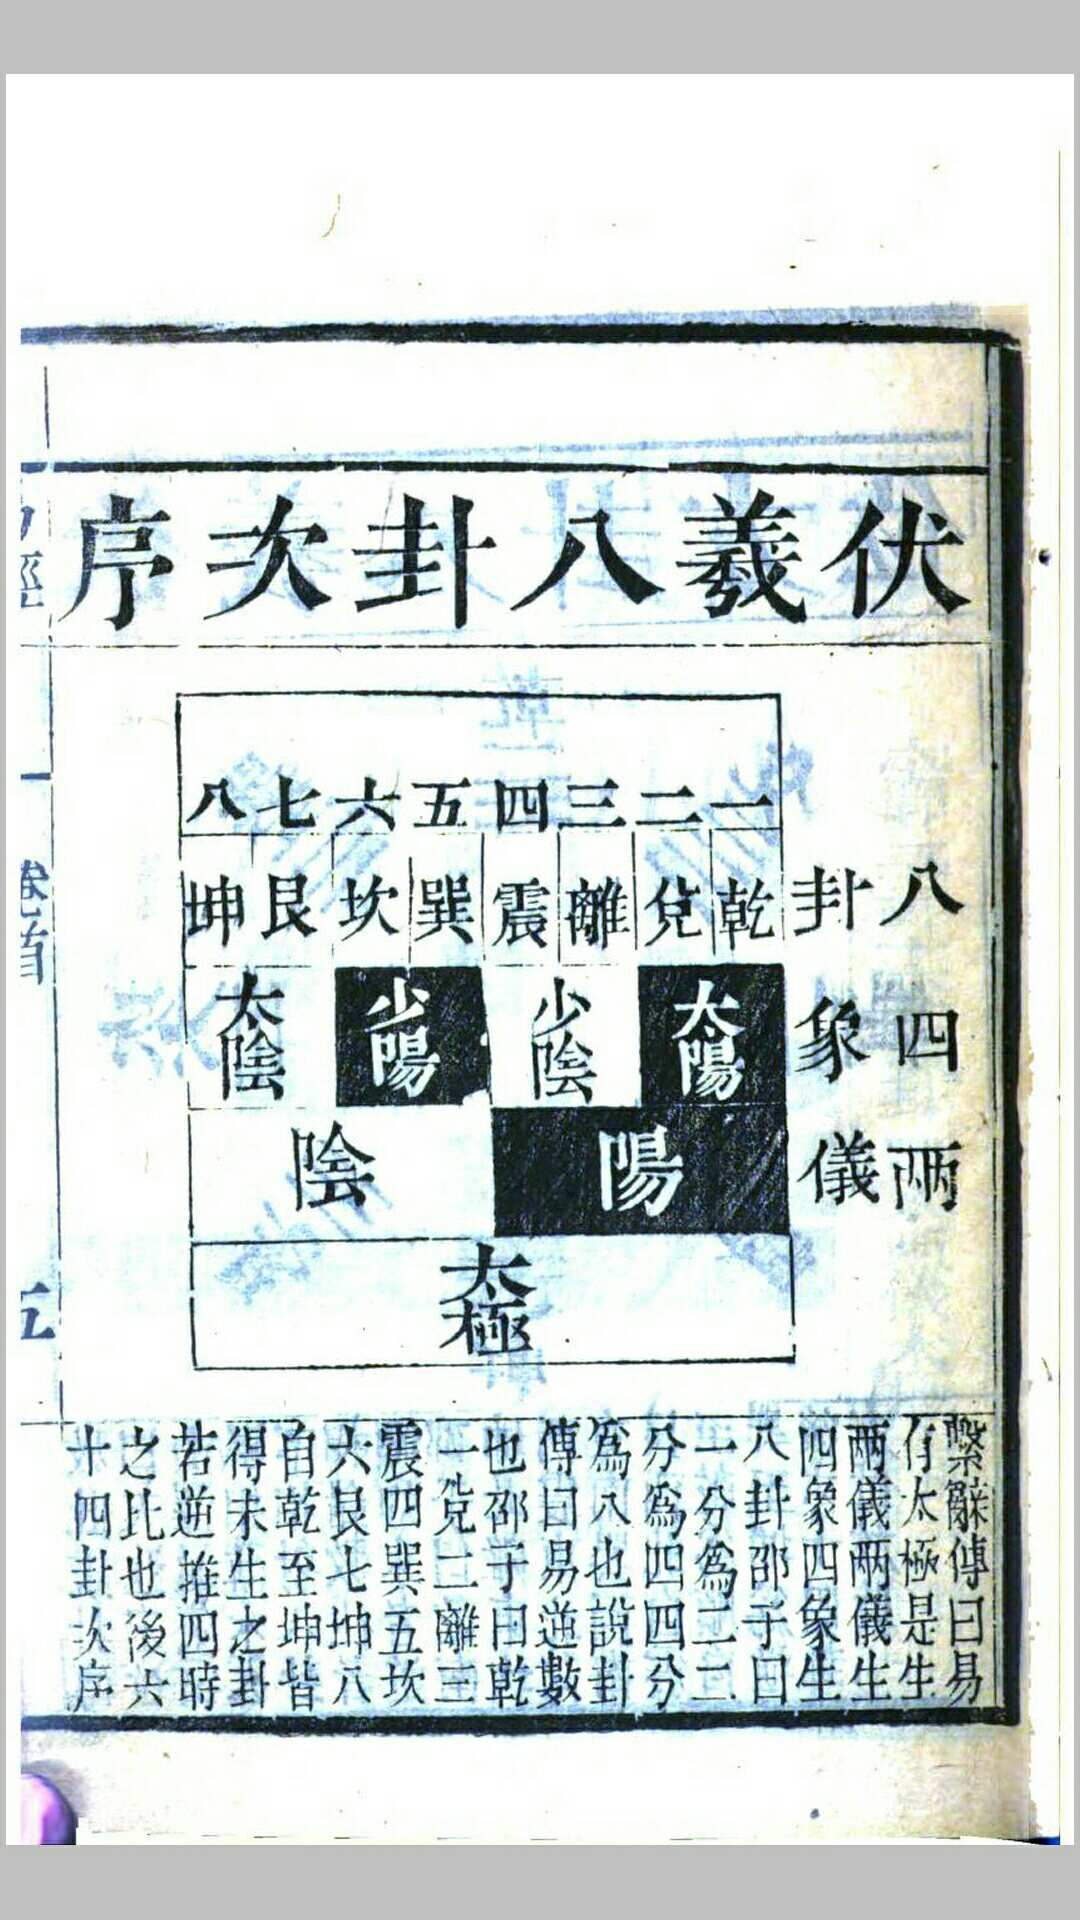 伏羲八卦次序
一二三四五六七八
八卦
乾兌離震巽坎艮坤
四象
太陽
少陰
少陽
太陰
兩儀
陽
陰
太極
繫辭傳曰易
有太極是生
兩儀兩儀生
四象四象生
八卦邵子曰
一分為二二
分為四四分
為八也說卦
傳曰易逆數
也邵子曰乾
一兌二離三
震四巽五坎
六艮七坤八
自乾至坤皆
得未生之卦
若逆推四時
之比也後六
十四卦次序
卷首
五